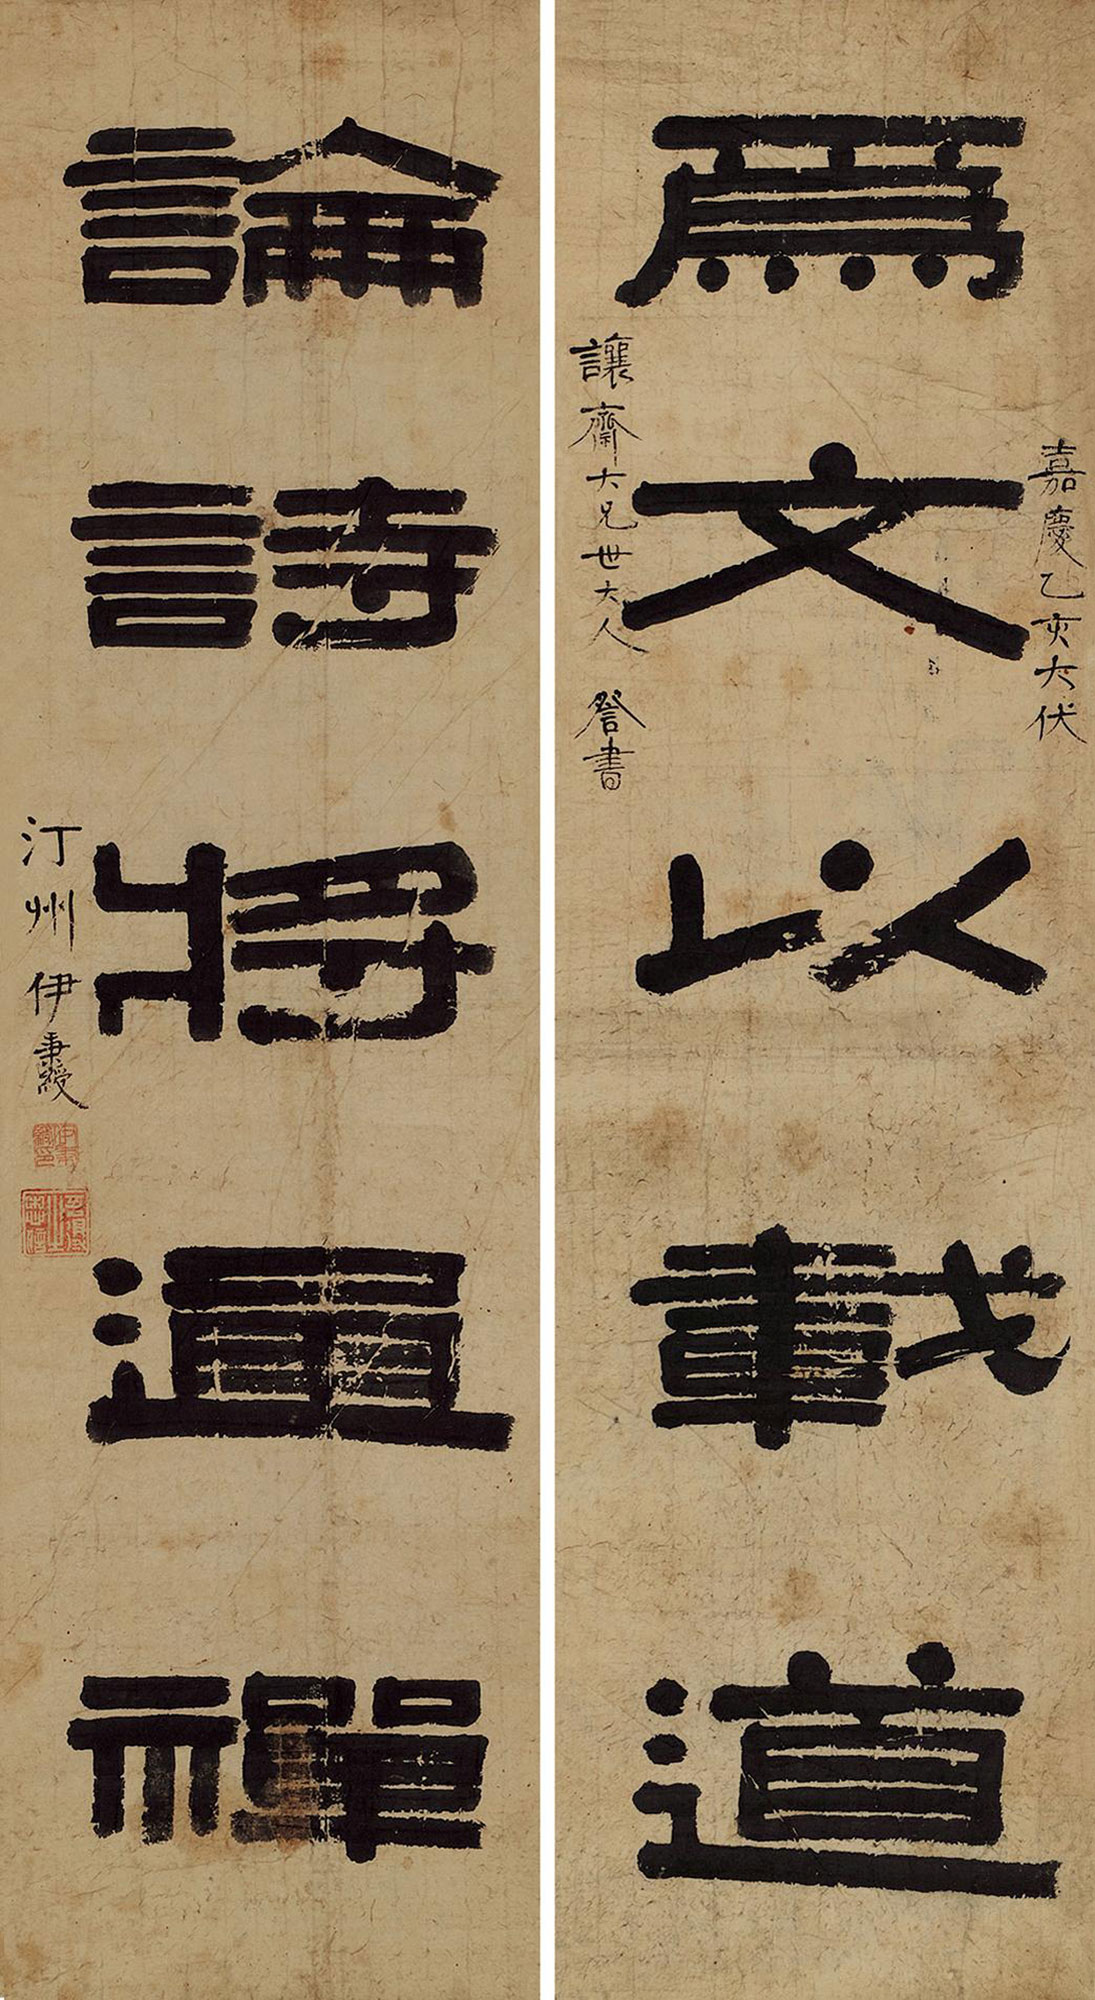 爲文以載道
嘉慶乙亥大伏
讓齋大兄世大人 詧書
論詩將通禪
汀州伊秉綬
伊秉綬印